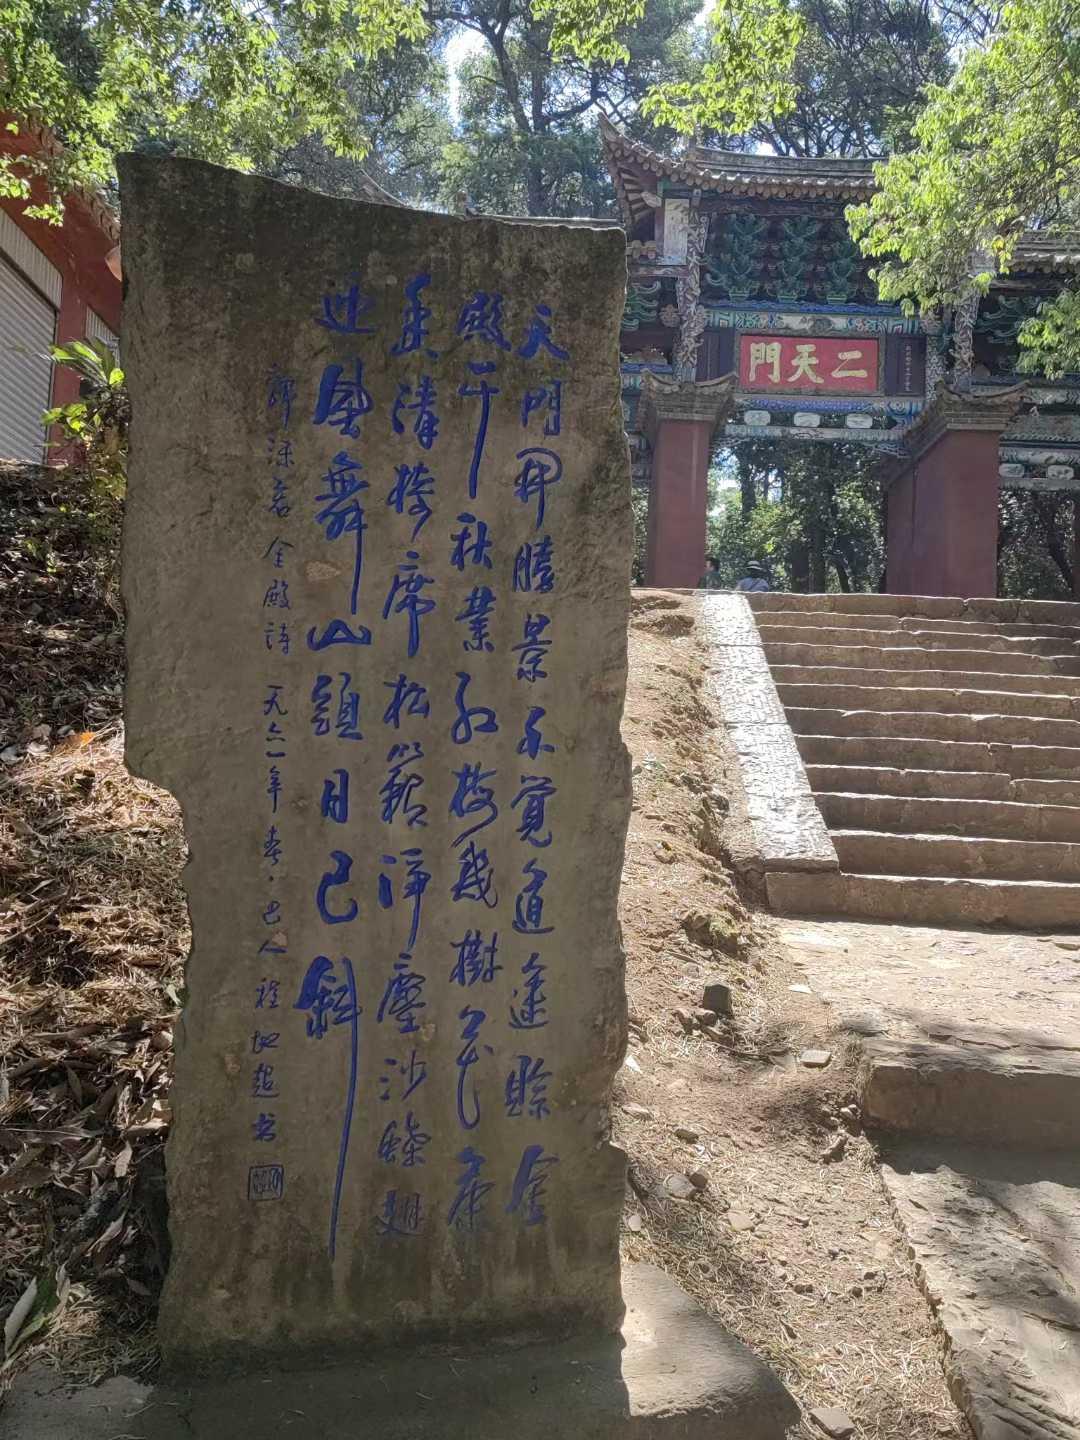 天門開勝景不覺道途賒金
殿千秋業紅梅幾樹花茶
香清椅席松籟淨塵沙蝶翅
迎風舞山頭日已斜
郭沫若金殿詩 一九六一年春·巴人程地超书
二天門